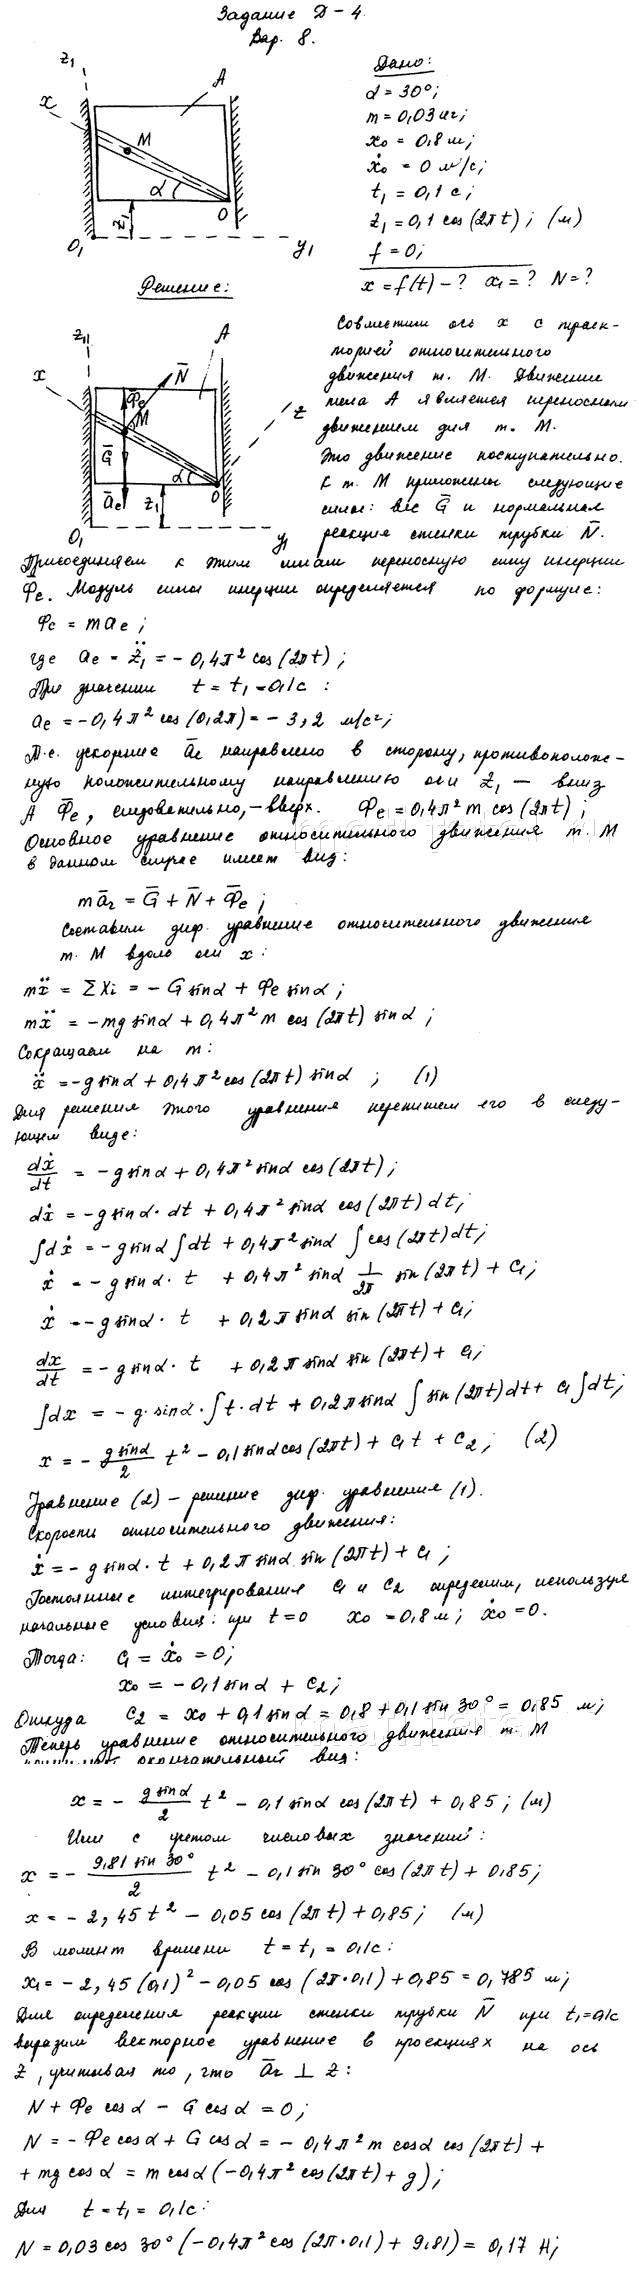 Задание Д-4.
Вар. 8.
z₁
x
A
M
α
O
z₁
O₁
y₁
Дано:
α = 30°;
m = 0,03 кг;
x₀ = 0,8 м;
ẋ₀ = 0 м/с;
t₁ = 0,1 с;
z₁ = 0,1 cos(2πt); (м)
f = 0;
x = f(t) - ? x₁ = ? N = ?
Решение:
z₁
x
A
N̄
Φ̄e
M
z
Ḡ
α
āe
z₁
O
O₁
y₁
Совместим ось x с траек-
торией относительного
движения т. M. Движение
тела A является переносным
движением для т. M.
Это движение поступательно.
К т. M приложены следующие
силы: вес Ḡ и нормальная
реакция стенки трубки N̄.
Присоединяем к этим силам переносную силу инерции
Φ̄e. Модуль силы инерции определяется по формуле:
Φe = mae;
где ae = z̈₁ = - 0,4π² cos(2πt);
При значении t = t₁ = 0,1с :
ae = -0,4π² cos(0,2π) = - 3,2 м/с²;
Т.е. ускорение āe направлено в сторону, противополож-
ную положительному направлению оси z₁ — вниз
А Φ̄e, следовательно, - вверх. Φe = 0,4π² m cos(2πt);
Основное уравнение относительного движения т. M
в данном случае имеет вид:
mār = Ḡ + N̄ + Φ̄e;
Составим диф. уравнение относительного движения
т. M вдоль оси x:
mẍ = ΣXi = - G sinα + Φe sinα;
mẍ = -mg sinα + 0,4π² m cos(2πt) sinα;
Сокращаем на m:
ẍ = -g sinα + 0,4π² cos(2πt) sinα ; (1)
Для решения этого уравнения перепишем его в следу-
ющем виде:
dẋ/dt = -g sinα + 0,4π² sinα cos(2πt);
dẋ = -g sinα · dt + 0,4π² sinα cos(2πt) dt;
∫dẋ = -g sinα ∫dt + 0,4π² sinα ∫cos(2πt) dt;
ẋ = -g sinα · t + 0,4π² sinα 1/2π sin(2πt) + C₁;
ẋ = -g sinα · t + 0,2π sinα sin(2πt) + C₁;
dx/dt = -g sinα · t + 0,2π sinα sin(2πt) + C₁;
∫dx = -g · sinα · ∫t · dt + 0,2π sinα ∫sin(2πt)dt + C₁∫dt;
x = - g sinα/2 t² - 0,1 sinα cos(2πt) + C₁t + C₂; (2)
Уравнение (2) - решение диф. уравнения (1).
Скорости относительного движения:
ẋ = -g sinα · t + 0,2π sinα sin(2πt) + C₁;
Постоянные интегрирования C₁ и C₂ определим, используя
начальные условия: при t = 0 x₀ = 0,8 м; ẋ₀ = 0.
Тогда: C₁ = ẋ₀ = 0;
x₀ = -0,1 sinα + C₂;
Откуда C₂ = x₀ + 0,1 sinα = 0,8 + 0,1 sin 30° = 0,85 м;
Теперь уравнение относительного движения т. M
окончательный вид:
x = - g sinα/2 t² - 0,1 sinα cos(2πt) + 0,85; (м)
Или с учетом числовых значений:
x = - 9,81 sin 30°/2 t² - 0,1 sin 30° cos(2πt) + 0,85;
x = - 2,45t² - 0,05 cos(2πt) + 0,85; (м)
В момент времени t = t₁ = 0,1с:
x₁ = -2,45(0,1)² - 0,05 cos(2π·0,1) + 0,85 = 0,785 м;
Для определения реакции стенки трубки N̄ при t₁ = 0,1с
выразим векторное уравнение в проекциях на ось
z, учитывая то, что ār ⊥ z:
N + Φe cosα - G cosα = 0;
N = -Φe cosα + G cosα = - 0,4π² m cosα cos(2πt) +
+ mg cosα = m cosα(-0,4π² cos(2πt) + g);
Для t = t₁ = 0,1с:
N = 0,03 cos 30°(-0,4π² cos(2π·0,1) + 9,81) = 0,17 Н;